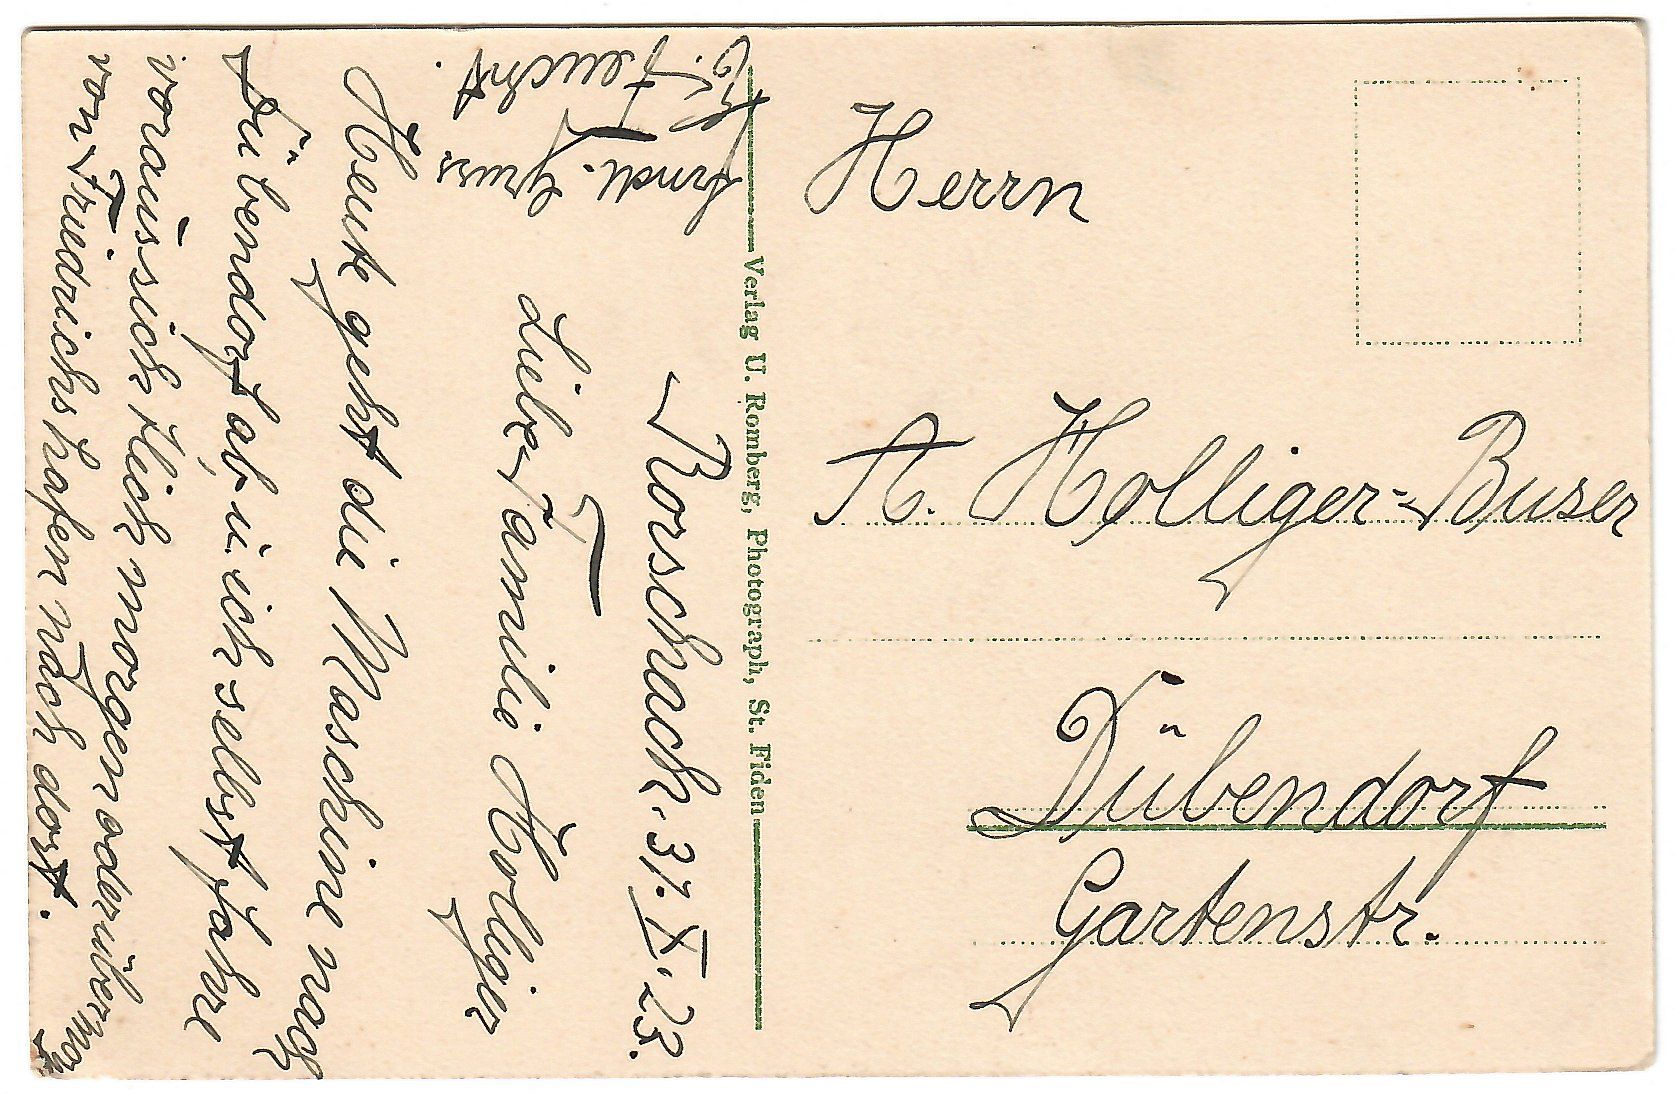 Rorschach, 31. X. 23.
Liebe Familie Holliger
Heute geht die Maschine nach
Dübendorf ab u. ich selbst fahre
voraussichtlich morgen oder über mor
von Friedrichshafen nach dort.
Frndl. Gruss
Feucht
Verlag U. Romberg, Photograph, St. Fiden
Herrn
A. Holliger-Buser
Dübendorf
Gartenstr.